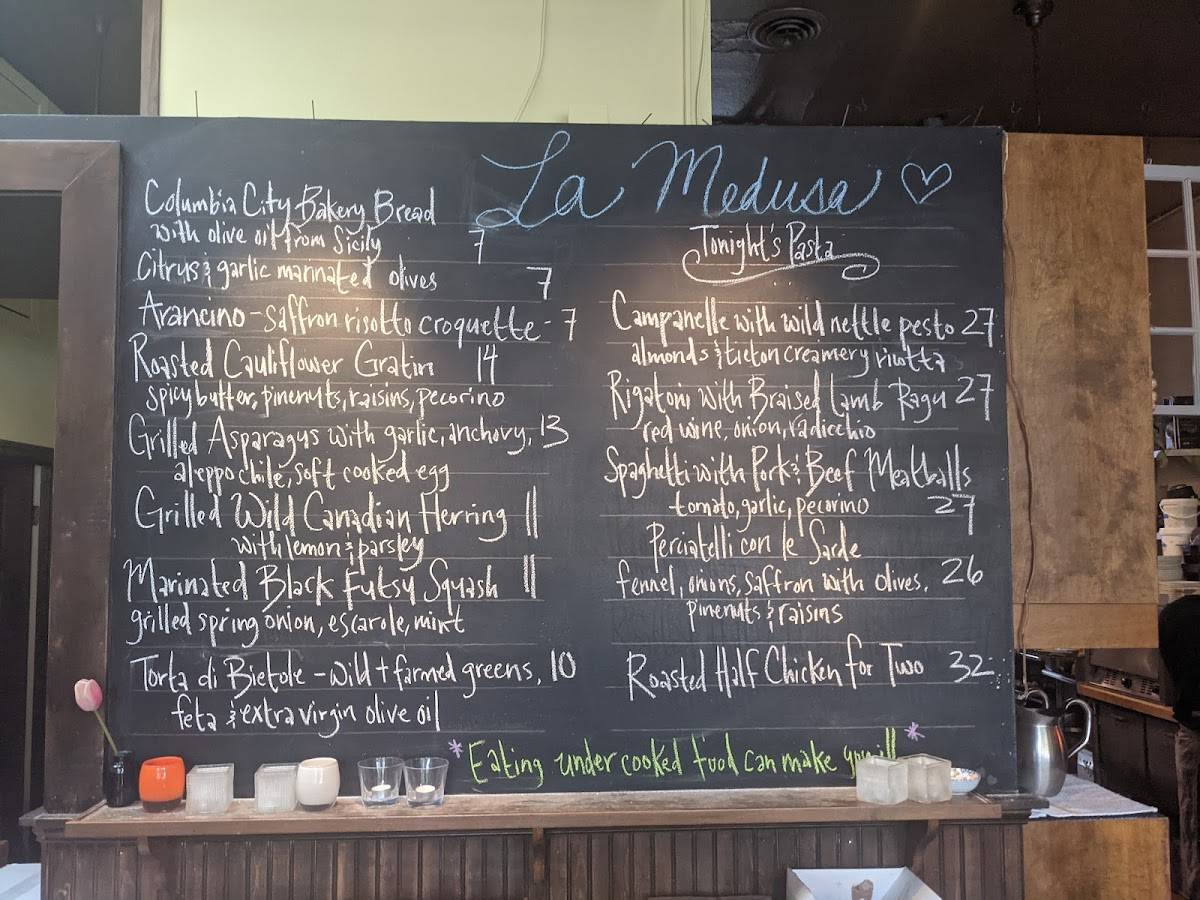 La Medusa
Columbia City Bakery Bread
with olive oil from Sicily 7
Citrus & garlic marinated olives 7
Arancino - saffron risotto croquette - 7
Roasted Cauliflower Gratin 14
spicy butter, pinenuts, raisins, pecorino
Grilled Asparagus with garlic, anchovy, 13
aleppo chile, soft cooked egg
Grilled Wild Canadian Herring 11
with lemon & parsley
Marinated Black Futsy Squash 11
grilled spring onion, escarole, mint
Torta di Bietole - wild + farmed greens, 10
feta & extra virgin olive oil
Tonight's Pasta
Campanelle with wild nettle pesto 27
almonds & tieton creamery ricotta
Rigatoni with Braised Lamb Ragu 27
red wine, onion, radicchio
Spaghetti with Pork & Beef Meatballs
tomato, garlic, pecorino 27
Perciatelli con le Sarde
fennel, onions, saffron with olives, 26
pinenuts & raisins
Roasted Half Chicken for Two 32
*Eating undercooked food can make you ill*